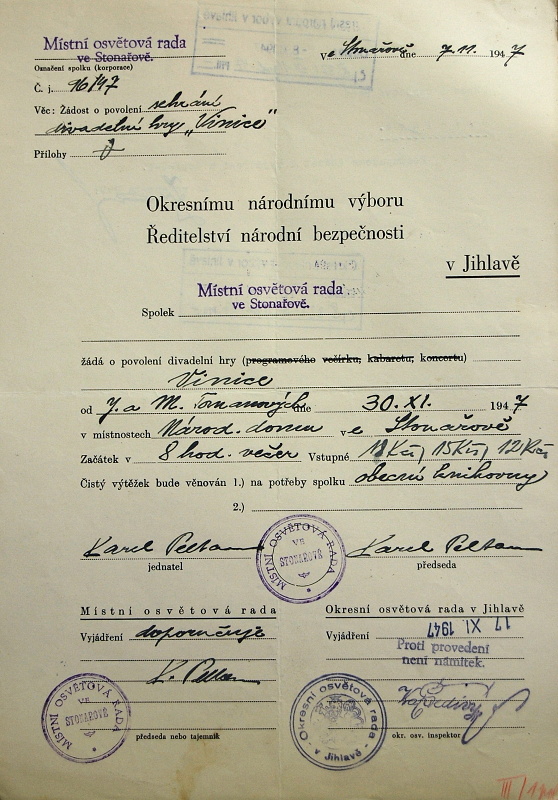 Místní osvětová rada
ve Stonařově.
Označení spolku (korporace)
Ve Stonařově dne 7.11. 1947
Č. j. 16/47
Věc: Žádost o povolení sehrání
divadelní hry „Vinice"
Přílohy
Okresnímu národnímu výboru
Ředitelství národní bezpečnosti
v Jihlavě
Místní osvětová rada
ve Stonařově.
Spolek
žádá o povolení divadelní hry (programového večírku, kabaretu, koncertu)
Vinice
od J. a M. Tomanových dne 30. XI. 1947
v místnostech Národ. domu ve Stonařově
Začátek v 8 hod. večer Vstupné 18 Kčs, 15 Kčs, 12 Kčs
Čistý výtěžek bude věnován 1.) na potřeby spolku obecní knihovny
2.)
Karel Peltan Karel Peltan
jednatel předseda
MÍSTNÍ OSVĚTOVÁ RADA
VE
STONAŘOVĚ
Místní osvětová rada
Vyjádření doporučuje
K. Peltan
předseda nebo tajemník
MÍSTNÍ OSVĚTOVÁ RADA
VE
STONAŘOVĚ
Okresní osvětová rada v Jihlavě
17 XI. 1947
Vyjádření
Proti provedení
není námitek.
okr. osv. inspektor
Okresní osvětová rada
v Jihlavě